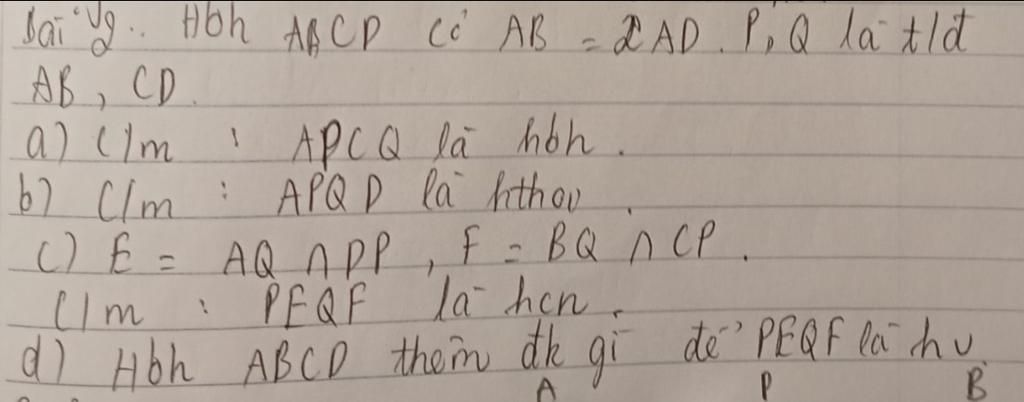 Bài Vg.. Hbh ABCD có AB = 2AD. P, Q là t/đ
AB, CD.
a) C/m : APCQ là hbh.
b) C/m : APQD là hthoi.
c) E = AQ ∩ DP, F = BQ ∩ CP.
C/m : PEQF là hcn.
d) Hbh ABCD thêm đk gì để PEQF là hv.
A P B